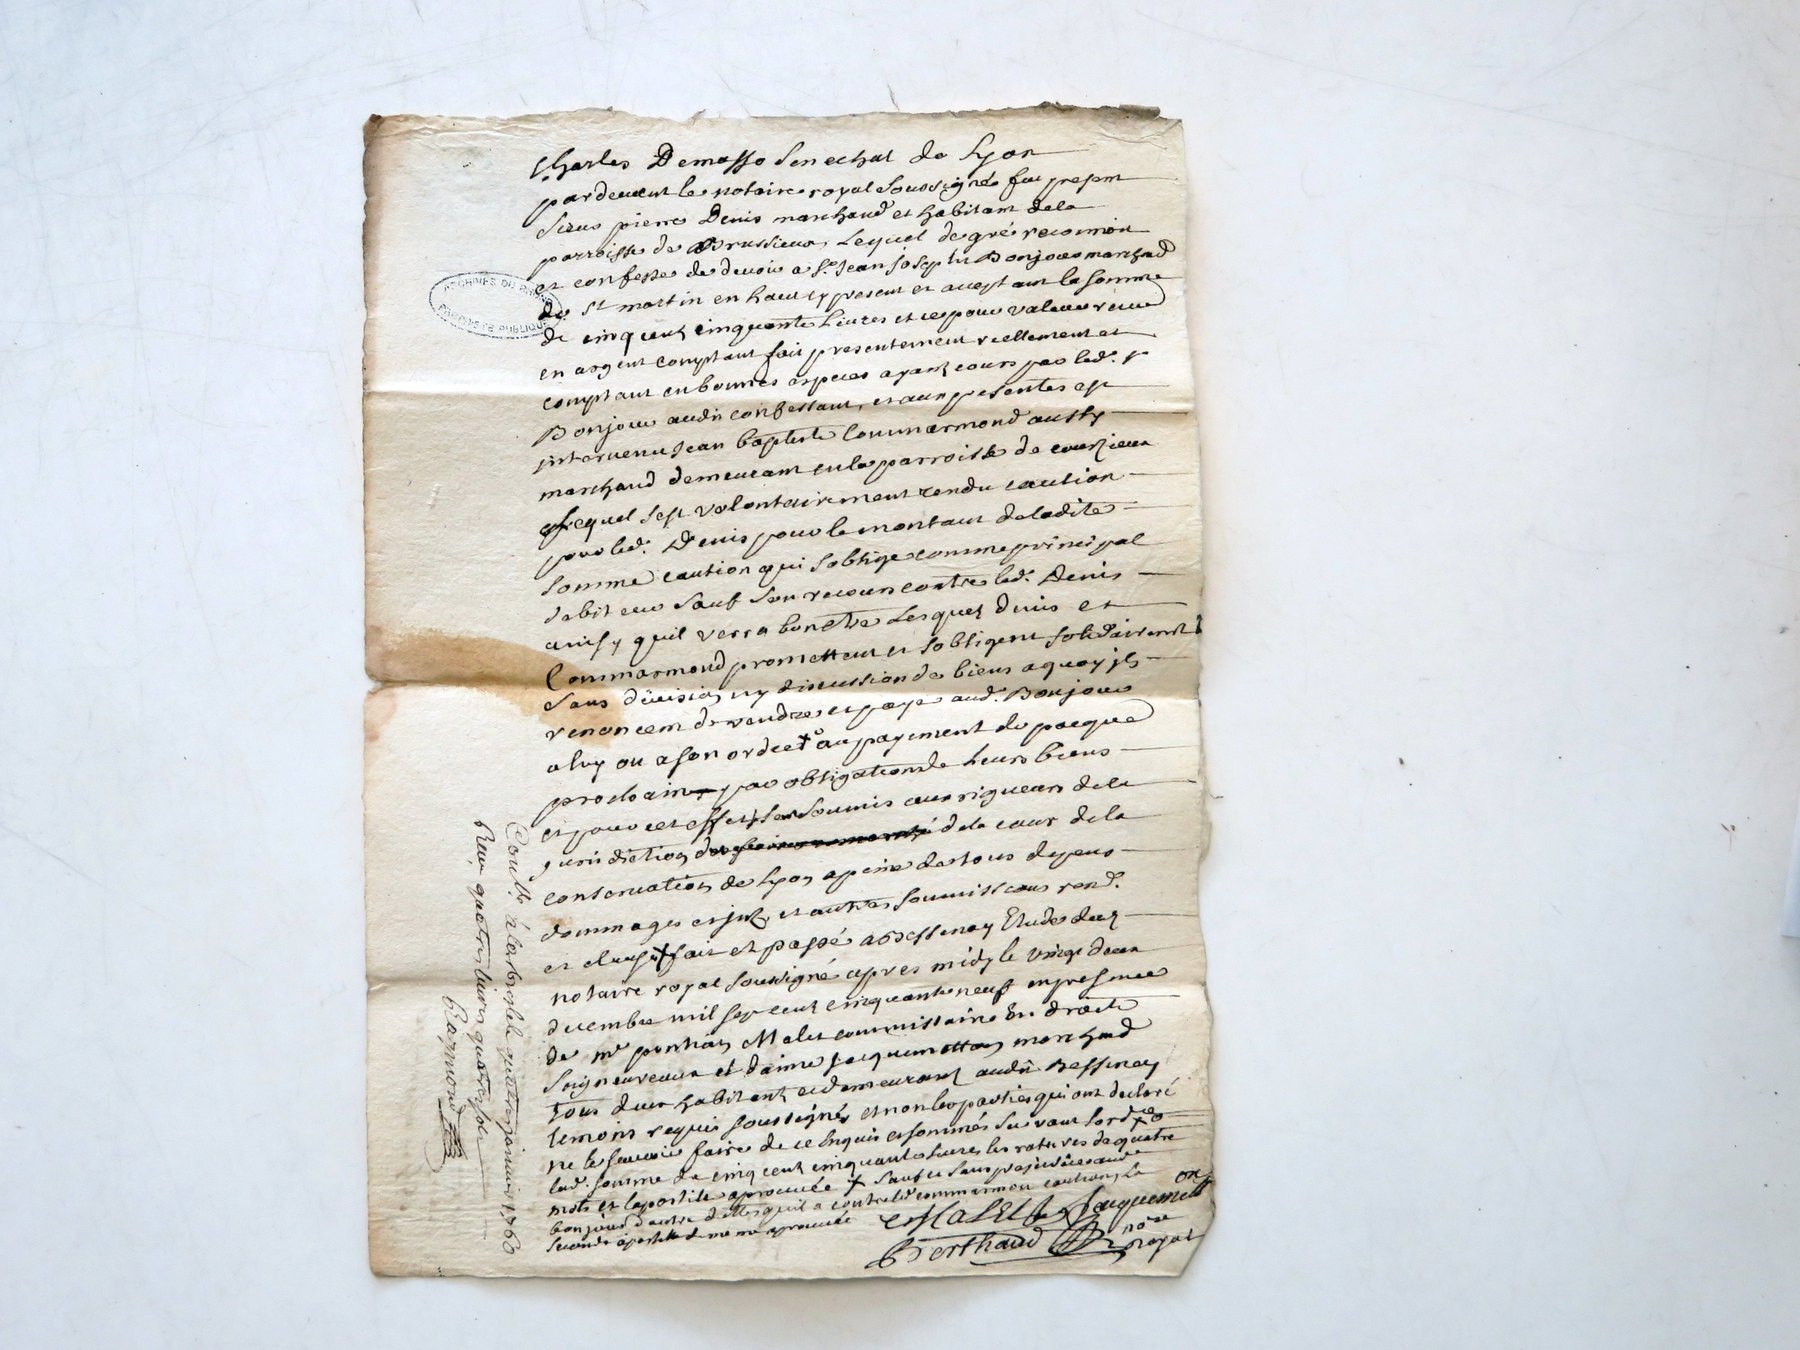 Charles Demasso senechal de Lyon
pardevant le notaire royal soussigné fut present
sieur pierre Denis marchand et habitant dela
parroisse de Brussieux, Lequel de gré reconnoit
et confesse de devoir a sr. Jean Joseph Bonjour marchand
de st martin en haut y present et acceptant la somme
de cinq cent cinquante Livres et ce pour valeur reçue
en argent comptant fait presentement reellement et
comptant en bonnes especes ayant cours par led. sr
Bonjour audit confessant, et aux presentes est
intervenu Jean baptiste Commarmond aussy
marchand demeurant en la parroisse de courzieux
Lequel sest volontairement rendu caution
pour led. Denis pour le montant de ladite
somme caution qui soblige comme principal
debiteur sauf son recours contre led. Denis
ainsy quil verra bon etre Lesquels denis et
Commarmond promettent et sobligent solidairement
sans division ny discussion de biens a quoy ils
renoncent de rendre et payer aud. Bonjour
a luy ou a son ordre + au payement de pacque
prochain par obligation de Leurs biens
et pour cet effet se sont soumis aux rigueurs de la
jurisdiction de la cour de la
conservation de Lyon a peine de tous depens
dommages et jnts, et autres soumissions rend.
et clauses + fait et passé a Bessenay Etude du
notaire royal soussigné apres midy le vingt deux
decembre mil sept cent cinquante neuf en presence
de me ponthus Malet commissaire En droits
seigneureaux et daime Jacquemetton marchand
tous deux habitants et demeurant audit Bessenay
temoins requis soussignés et non les parties qui ont declaré
ne le savoir faire de ce Enquis et sommés suivant lordce +
lad. somme de cinq cent cinquante livres les ratures de quatre
mots et lapostile aprouvée + sauf et sans prejudice aud.
bonjour dautre dettes quil a contre led. commarmon caution, La
seconde apostille de meme aprouvée
Malet Jacquemetton
Berthaud nore royal
Conllé a larbresle le quatre janvier 1760
Reçu quatre livres quatorze sols
Raymond
ARCHIVES DU RHONE
PROPRIETE PUBLIQUE